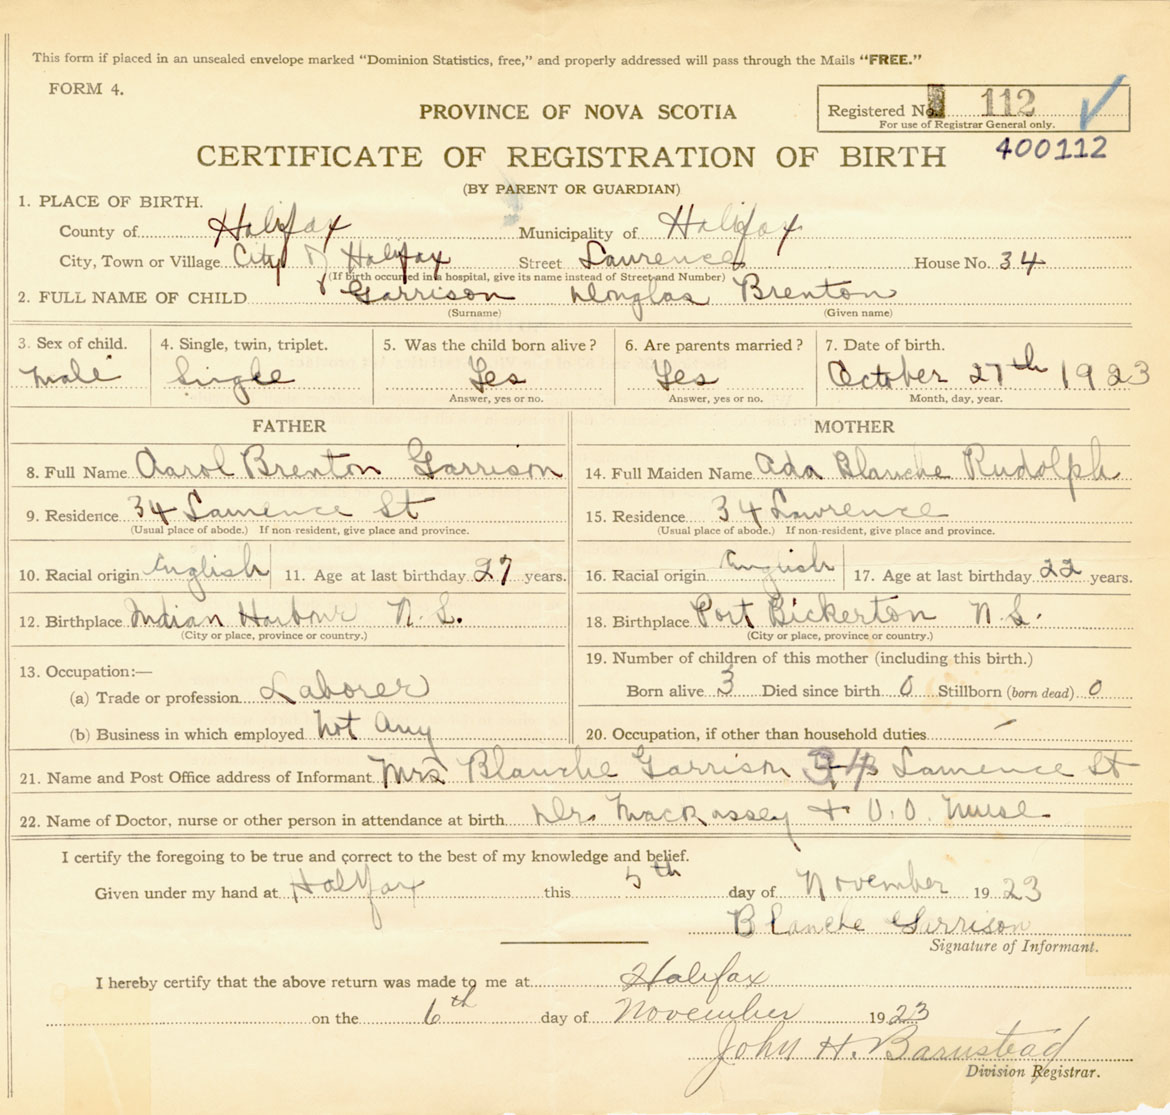 This form if placed in an unsealed envelope marked "Dominion Statistics, free," and properly addressed will pass through the Mails "FREE."
FORM 4.
PROVINCE OF NOVA SCOTIA
Registered No. 112
For use of Registrar General only.
400112
CERTIFICATE OF REGISTRATION OF BIRTH
(BY PARENT OR GUARDIAN)
1. PLACE OF BIRTH.
County of Halifax Municipality of Halifax
City, Town or Village City of Halifax Street Laurence House No. 34
(If birth occurred in a hospital, give its name instead of Street and Number)
2. FULL NAME OF CHILD Garrison Douglas Brenton
(Surname) (Given name)
3. Sex of child. 4. Single, twin, triplet. 5. Was the child born alive? 6. Are parents married? 7. Date of birth.
Male Single Yes Yes October 27th 1923
Answer, yes or no. Answer, yes or no. Month, day, year.
FATHER MOTHER
8. Full Name Aarol Brenton Garrison 14. Full Maiden Name Ada Blanche Rudolph
9. Residence 34 Laurence St 15. Residence 34 Lawrence
(Usual place of abode.) If non-resident, give place and province. (Usual place of abode.) If non-resident, give place and province.
10. Racial origin English 11. Age at last birthday 27 years. 16. Racial origin English 17. Age at last birthday 22 years.
12. Birthplace Indian Harbour N.S. 18. Birthplace Port Bickerton N.S.
(City or place, province or country.) (City or place, province or country.)
13. Occupation:— 19. Number of children of this mother (including this birth.)
(a) Trade or profession Laborer Born alive 3 Died since birth 0 Stillborn (born dead) 0
(b) Business in which employed Not Any 20. Occupation, if other than household duties –
21. Name and Post Office address of Informant Mrs Blanche Garrison 34 Laurence St
22. Name of Doctor, nurse or other person in attendance at birth Dr. & V.O. Nurse
I certify the foregoing to be true and correct to the best of my knowledge and belief.
Given under my hand at Halifax this 5th day of November 1923
Blanche Garrison
Signature of Informant.
I hereby certify that the above return was made to me at Halifax
on the 6th day of November 1923
John H. Barnstead
Division Registrar.